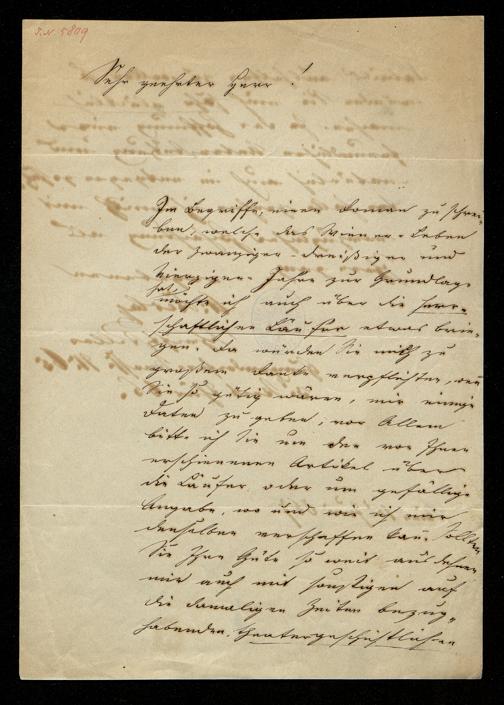 I.N. 5809
Sehr geehrter Herr!
Im Begriffe, einen Roman zu schrei-
ben, welcher das Wiener-Leben
der Zwanziger-Dreißiger und
Vierziger-Jahre zur Grundlage
hat, möchte ich auch über die herr-
schaftlichen Läufer etwas brin-
gen. Da würden Sie mich zu
großem Danke verpflichten, wenn
Sie so gütig wären, mir einige
Daten zu geben, vor Allem
bitte ich Sie um den von Ihnen
erschienenen Artikel über
die Läufer, oder um gefällige
Angabe, wo und wie ich mir
denselben verschaffen kann. Sollten
Sie Ihre Güte so weit ausdehnen
mir auch mit sonstigen auf
die damaligen Zeiten bezug-
habenden, theatergeschichtlichen